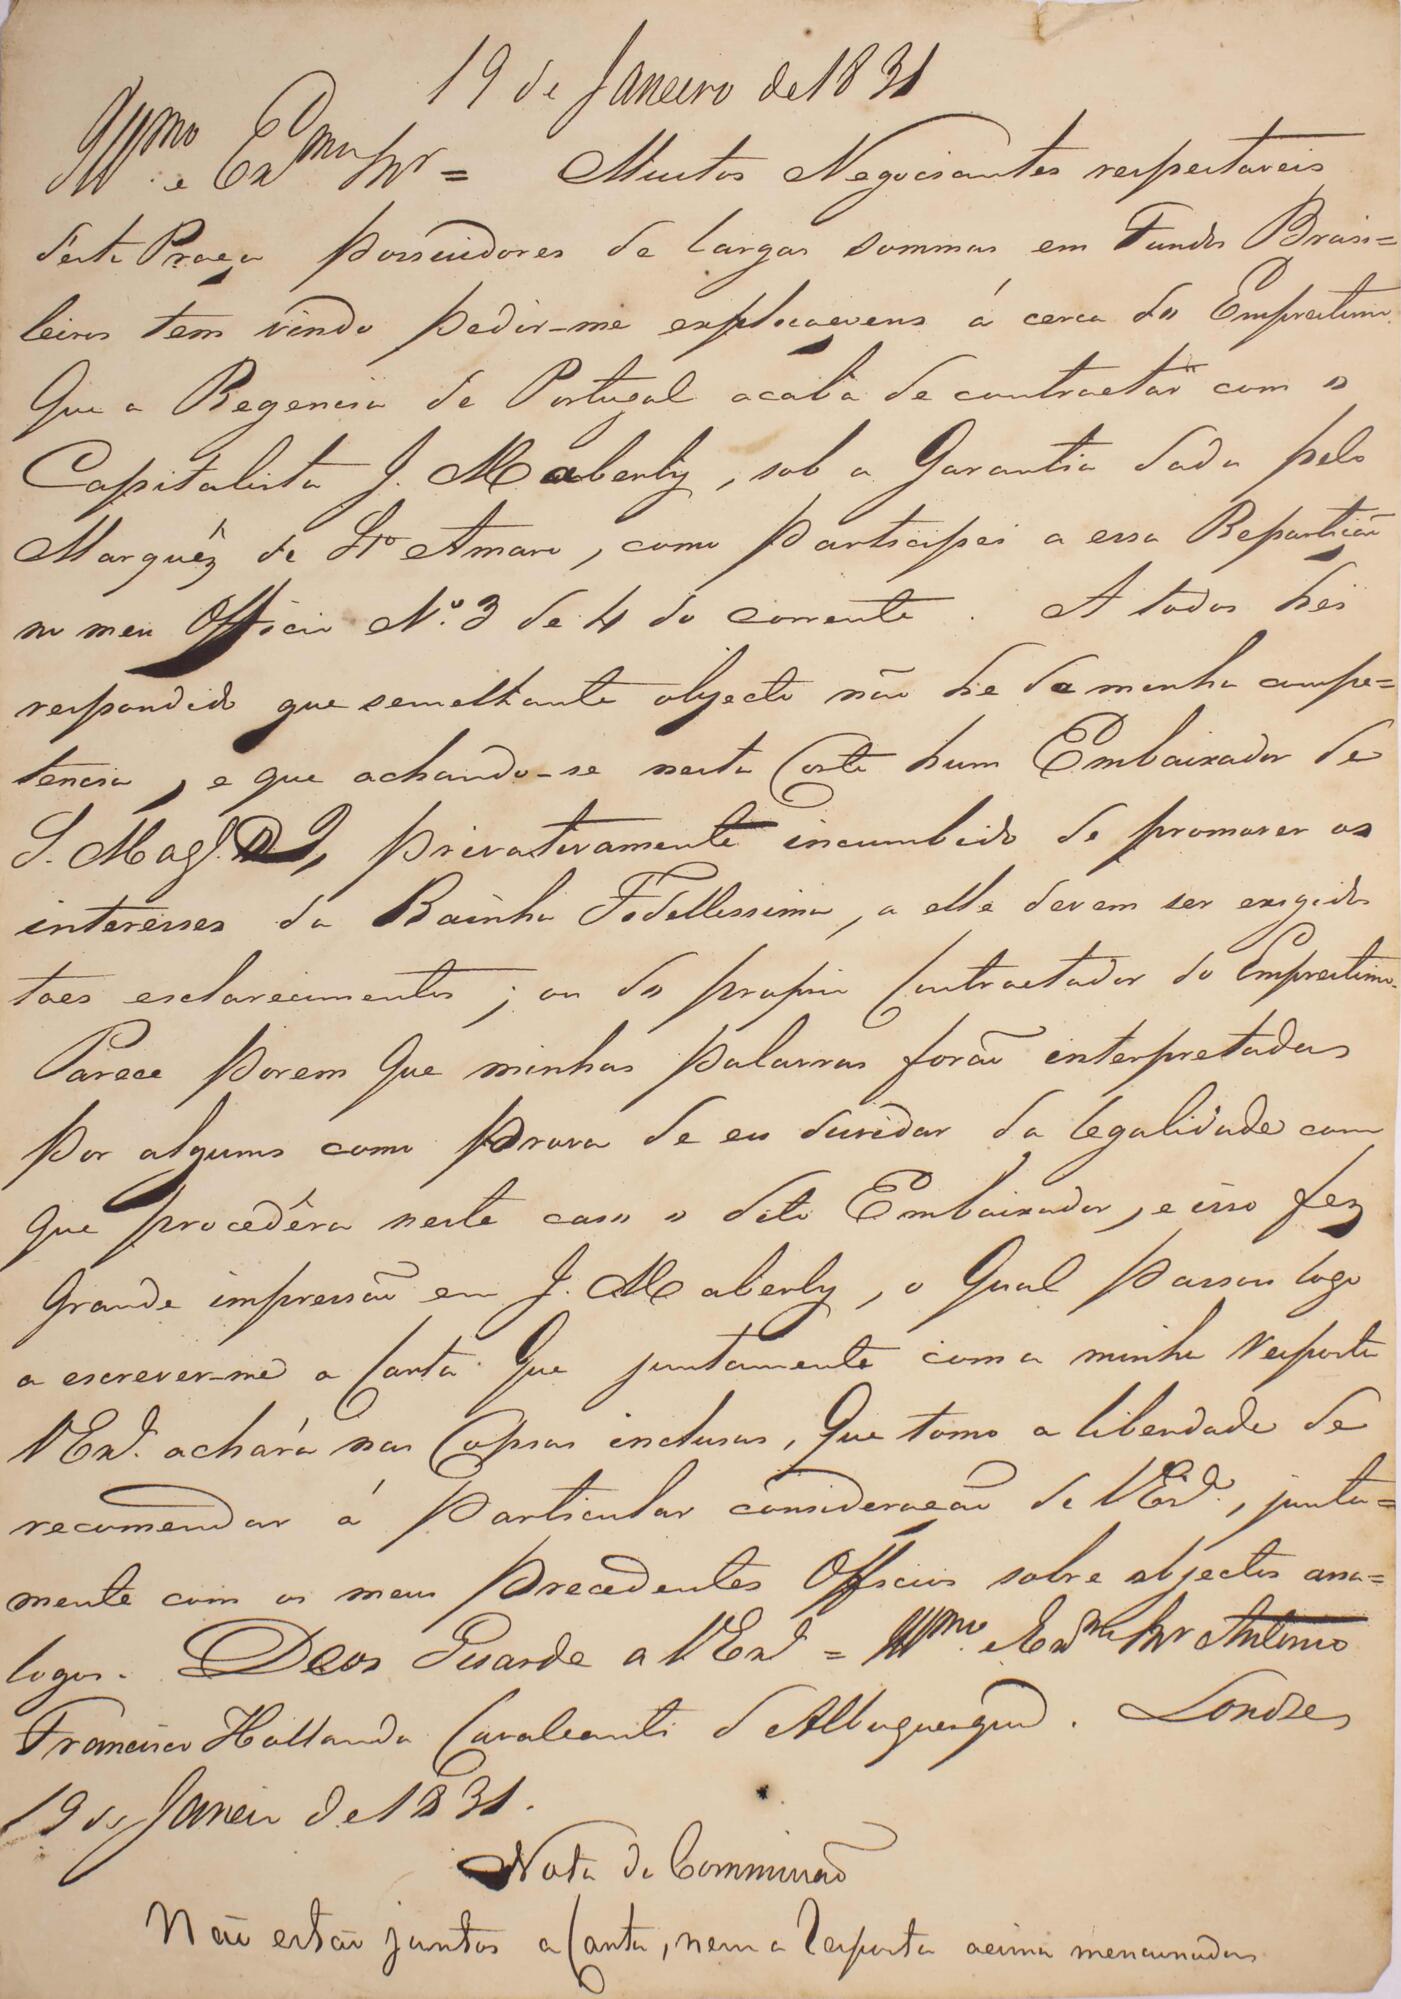 19 de Janeiro de 1831
Illmo e Exmo Snr = Muitos Negociantes respeitaveis
desta Praça possuidores de largas sommas em Fundos Brasi=
leiros tem vindo pedir-me explicaçoens á cerca do Emprestimo
que a Regencia de Portugal acaba de contractar com o
Capitalista J. Maberly, sob a Garantia dada pelo
Marquêz de Sto Amaro, como participei a essa Repartição
no meu Officio No. 3 de 4 do corrente. A todos hei
respondido que semelhante objecto não he da minha compe=
tencia, e que achando-se nesta Corte hum Embaixador de
S. Mage. I, privativamente incumbido de promover os
interesses da Rainha Fidellissima, a elle devem ser exigidos
taes esclarecimentos; ou do proprio Contractador do Emprestimo.
Parece porem que minhas palavras forão interpretadas
por alguns como prova de eu duvidar da legalidade com
que procedêra neste caso o dito Embaixador, e isso fez
grande impressão em J. Maberly, o qual passou logo
a escrever-me a Carta que juntamente com a minha resposta
VExa. achará nas Copias inclusas, que tomo a liberdade de
recomendar á particular consideração de VExa., junta=
mente com os meus precedentes Officios sobre objectos ana=
logos. Deos Guarde a VExa = Illmo. e Exmo Snr Antonio
Francisco Hollanda Cavalcanti d'Albuquerque. Londres
19 de Janeiro de 1831.
Nota da Commissão
Não estão juntos a Carta, nem a resposta acima mencionadas